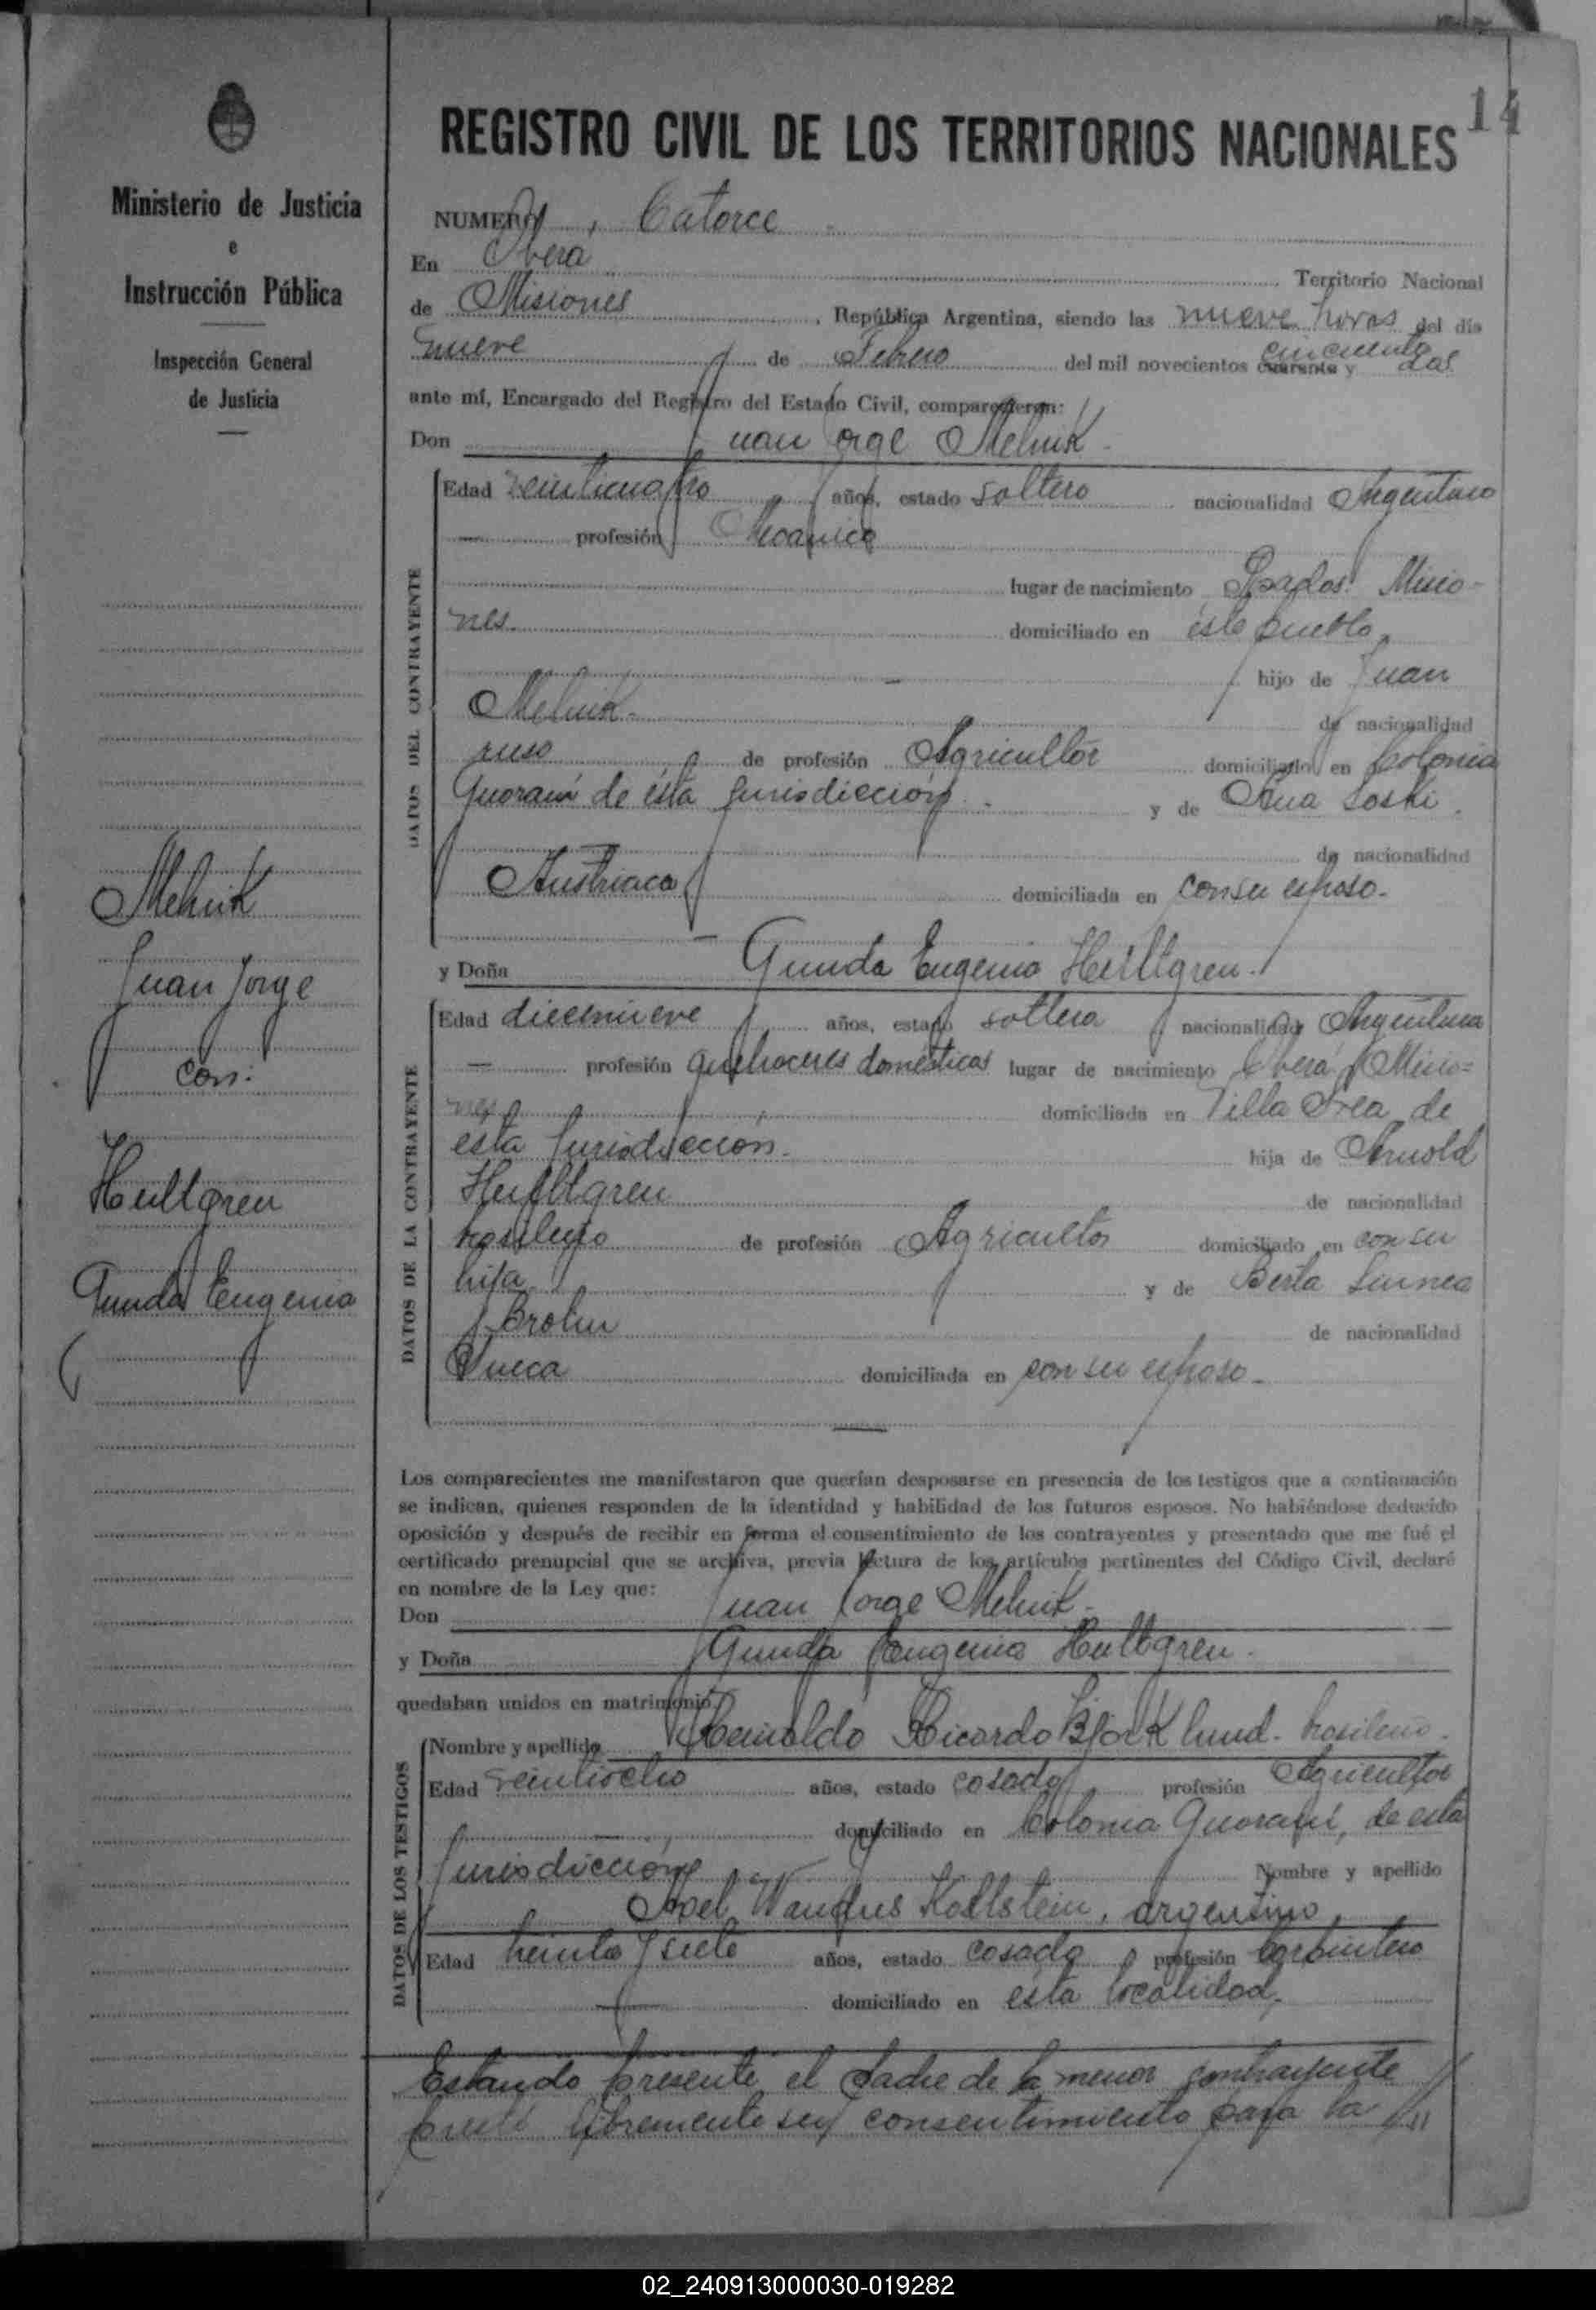 14
REGISTRO CIVIL DE LOS TERRITORIOS NACIONALES
Ministerio de Justicia
e
Instrucción Pública
Inspección General
de Justicia
Melnik
Juan Jorge
con:
Hultgren
Gunda Eugenia
NUMERO Catorce
En Oberá Territorio Nacional
de Misiones, República Argentina, siendo las nueve horas del día
nueve de Febrero del mil novecientos cuarenta y cincuenta dos
ante mí, Encargado del Registro del Estado Civil, comparecieron:
Don Juan Jorge Melnik
DATOS DEL CONTRAYENTE
Edad veinticuatro años, estado soltero nacionalidad Argentino
profesión Mecánico
lugar de nacimiento Posadas. Misio-
nes. domiciliado en éste pueblo,
hijo de Juan
Melnik. de nacionalidad
ruso de profesión Agricultor domiciliado en Colonia
Guaraní de ésta jurisdicción y de Ana
de nacionalidad
Austriaca domiciliada en con su esposo.
y Doña Gunda Eugenia Hultgren.
DATOS DE LA CONTRAYENTE
Edad diecinueve años, estado soltera nacionalidad Argentina
profesión quehaceres domésticos lugar de nacimiento Oberá Misio=
nes domiciliada en Villa Svea, de
esta jurisdicción. hija de Arnold
Hultgren de nacionalidad
brasileño de profesión Agricultor domiciliado en con su
hija y de Berta Linnea
Brolin de nacionalidad
Sueca domiciliada en con su esposo.
Los comparecientes me manifestaron que querían desposarse en presencia de los testigos que a continuación
se indican, quienes responden de la identidad y habilidad de los futuros esposos. No habiéndose deducido
oposición y después de recibir en forma el consentimiento de los contrayentes y presentado que me fué el
certificado prenupcial que se archiva, previa lectura de los artículos pertinentes del Código Civil, declaré
en nombre de la Ley que:
Don Juan Jorge Melnik.
y Doña Gunda Eugenia Hultgren.
quedaban unidos en matrimonio
DATOS DE LOS TESTIGOS
Nombre y apellido Reinaldo Ricardo Bjorklund. brasileño.
Edad veintiocho años, estado casado profesión Agricultor
domiciliado en Colonia Guaraní, de esta
jurisdicción Nombre y apellido
Axel Kallstein, argentino,
Edad treinta y siete años, estado casado profesión Carpintero
domiciliado en esta localidad,
Estando presente el padre de la menor contrayente
prestó libremente su consentimiento para la //
02_240913000030-019282